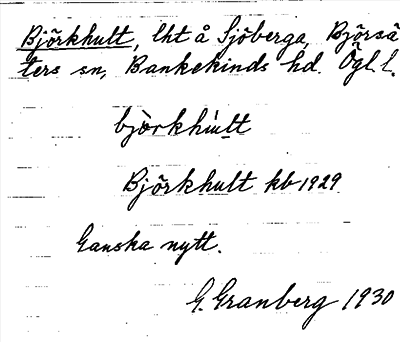 Björkhult, lht å Sjöberga, Björsä
ters sn, Bankekinds hd. Ögl. l.
bjòrkhu̇lt
Björkhult kb 1929
Ganska nytt.
G. Granberg 1930